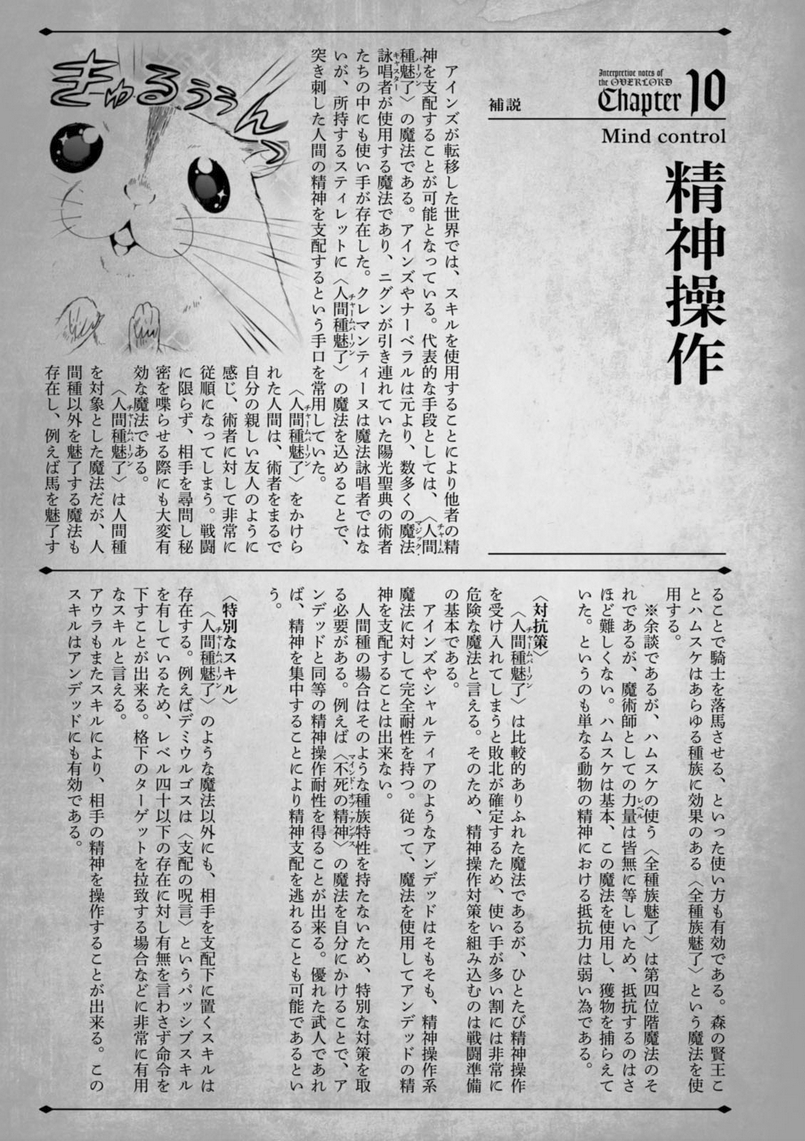 Interpretive notes of
the OVERLORD
Chapter 10
補説
Mind control
精神操作
アインズが転移した世界では、スキルを使用することにより他者の精
神を支配することが可能となっている。代表的な手段としては、〈人間
種魅了〉の魔法である。アインズやナーベラルは元より、数多くの魔法
詠唱者が使用する魔法であり、ニグンが引き連れていた陽光聖典の術者
たちの中にも使い手が存在した。クレマンティーヌは魔法詠唱者ではな
いが、所持するスティレットに〈人間種魅了〉の魔法を込めることで、
突き刺した人間の精神を支配するという手口を常用していた。
〈人間種魅了〉をかけら
れた人間は、術者をまるで
自分の親しい友人のように
感じ、術者に対して非常に
従順になってしまう。戦闘
に限らず、相手を尋問し秘
密を喋らせる際にも大変有
効な魔法である。
〈人間種魅了〉は人間種
を対象とした魔法だが、人
間種以外を魅了する魔法も
存在し、例えば馬を魅了す
きゅるぅぅんっ
ることで騎士を落馬させる、といった使い方も有効である。森の賢王こ
とハムスケはあらゆる種族に効果のある〈全種族魅了〉という魔法を使
用する。
※余談であるが、ハムスケの使う〈全種族魅了〉は第四位階魔法のそ
れであるが、魔術師としての力量は皆無に等しいため、抵抗するのはさ
ほど難しくない。ハムスケは基本、この魔法を使用し、獲物を捕らえて
いた。というのも単なる動物の精神における抵抗力は弱い為である。
〈対抗策〉
〈人間種魅了〉は比較的ありふれた魔法であるが、ひとたび精神操作
を受け入れてしまうと敗北が確定するため、使い手が多い割には非常に
危険な魔法と言える。そのため、精神操作対策を組み込むのは戦闘準備
の基本である。
アインズやシャルティアのようなアンデッドはそもそも、精神操作系
魔法に対して完全耐性を持つ。従って、魔法を使用してアンデッドの精
神を支配することは出来ない。
人間種の場合はそのような種族特性を持たないため、特別な対策を取
る必要がある。例えば〈不死の精神〉の魔法を自分にかけることで、ア
ンデッドと同等の精神操作耐性を得ることが出来る。優れた武人であれ
ば、精神を集中することにより精神支配を逃れることも可能であるとい
う。
〈特別なスキル〉
〈人間種魅了〉のような魔法以外にも、相手を支配下に置くスキルは
存在する。例えばデミウルゴスは〈支配の呪言〉というパッシブスキル
を有しているため、レベル四十以下の存在に対し有無を言わさず命令を
下すことが出来る。格下のターゲットを拉致する場合などに非常に有用
なスキルと言える。
アウラもまたスキルにより、相手の精神を操作することが出来る。この
スキルはアンデッドにも有効である。